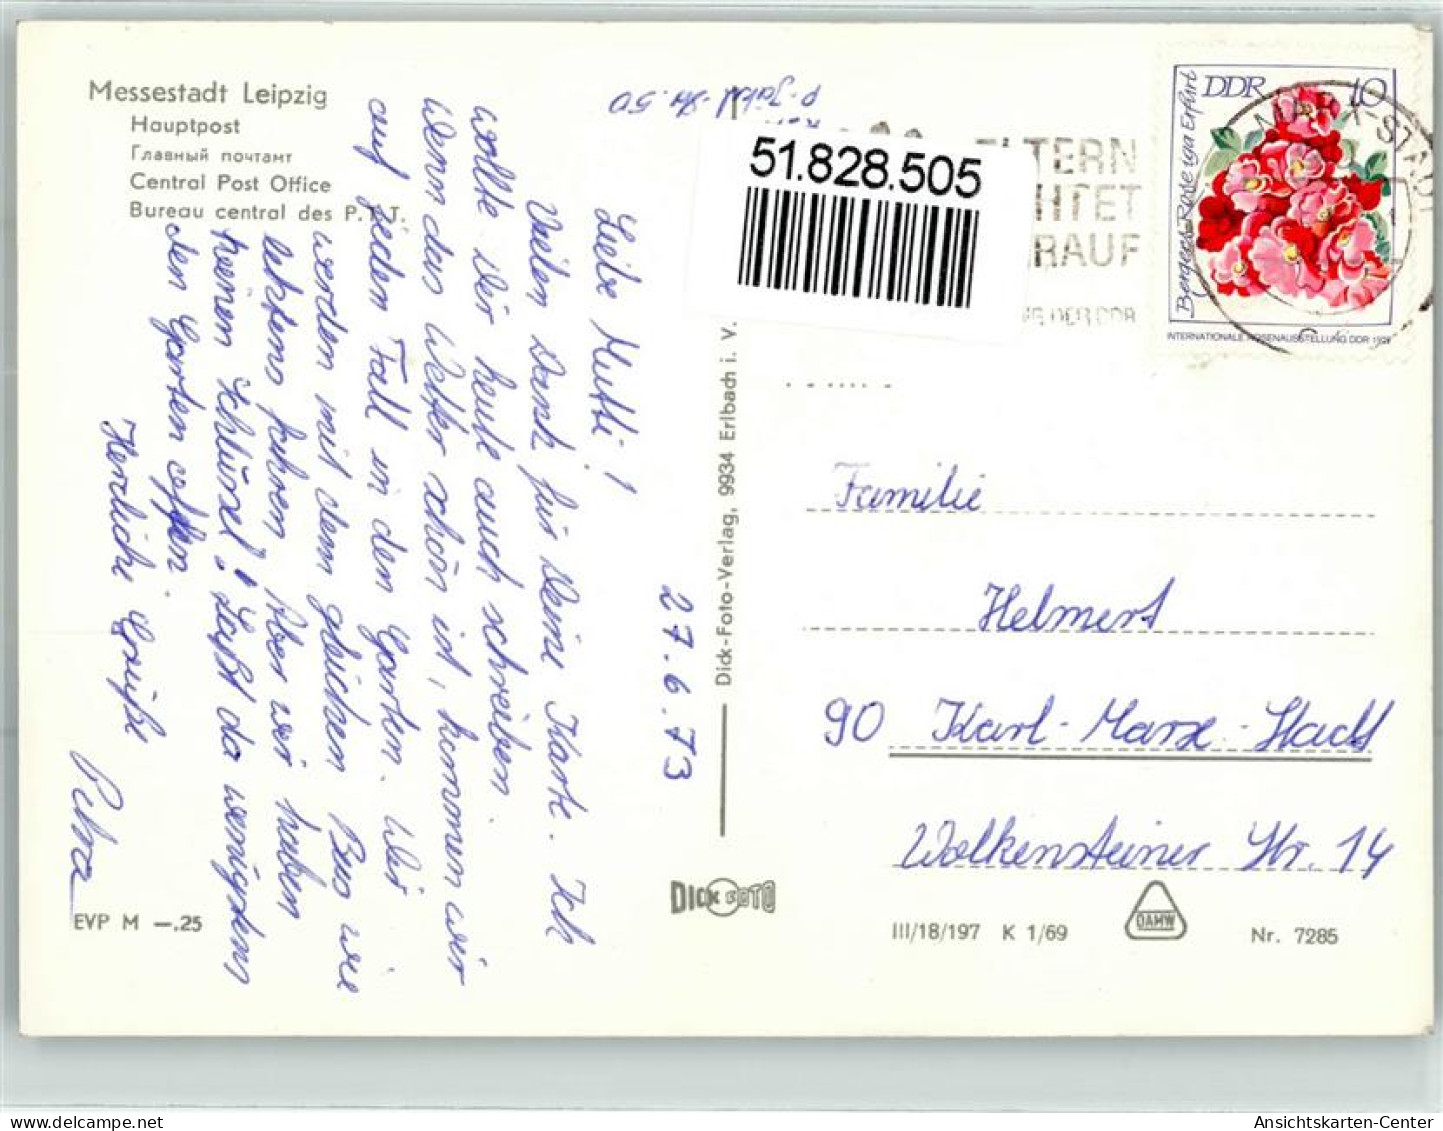 Messestadt Leipzig
Hauptpost
Главный почтамт
Central Post Office
Bureau central des P.T.T.
p. Jähl-Str. 50
51.828.505
ELTERN
ACHTET
DARAUF
DER DDR
DDR 10
Berges Rose iga Erfurt
INTERNATIONALE ROSENAUSSTELLUNG DDR 1972
MARX-STADT
27.6.73
Liebe Mutti!
Vielen Dank für Deine Karte. Ich
wollte Dir heute auch schreiben.
Wenn das Wetter schön ist, kommen wir
auf jeden Fall in den Garten. Wir
werden mit dem gleichen Bus wie
letztens fahren. Aber wir haben
keinen Schlüssel! Laßt da wenigstens
den Garten offen.
Herzliche Grüße
Petra
Familie
Helmert
90 Karl-Marx-Stadt
Wolkensteiner Str. 14
Dick-Foto-Verlag, 9934 Erlbach i. V.
DICK FOTO
EVP M —.25
III/18/197 K 1/69
DAMW
Nr. 7285
Ansichtskarten-Center